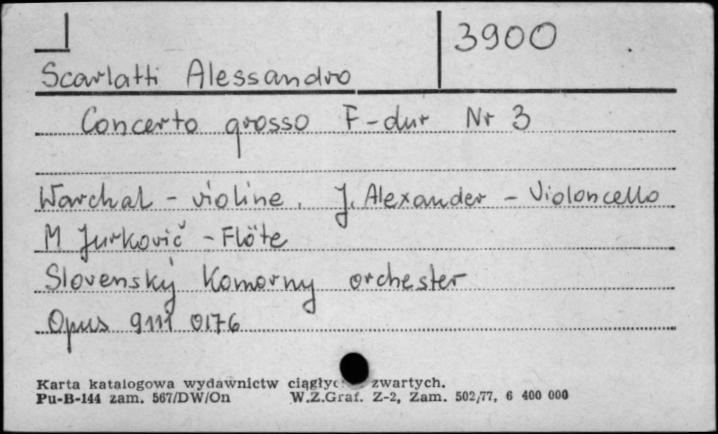 3900
Scarlatti Alessandro
Concerto grosso F-dur Nr 3
Warchal - violine. J. Alexander - Violoncello
M Jurkovič - Flöte
Slovenský Komorny orchester
Opus 9111 0176
Karta katalogowa wydawnictw zwartych.
Pu-B-144 zam. 567/DW/On W.Z.Graf. Z-2, Zam. 502/77, 6 400 000